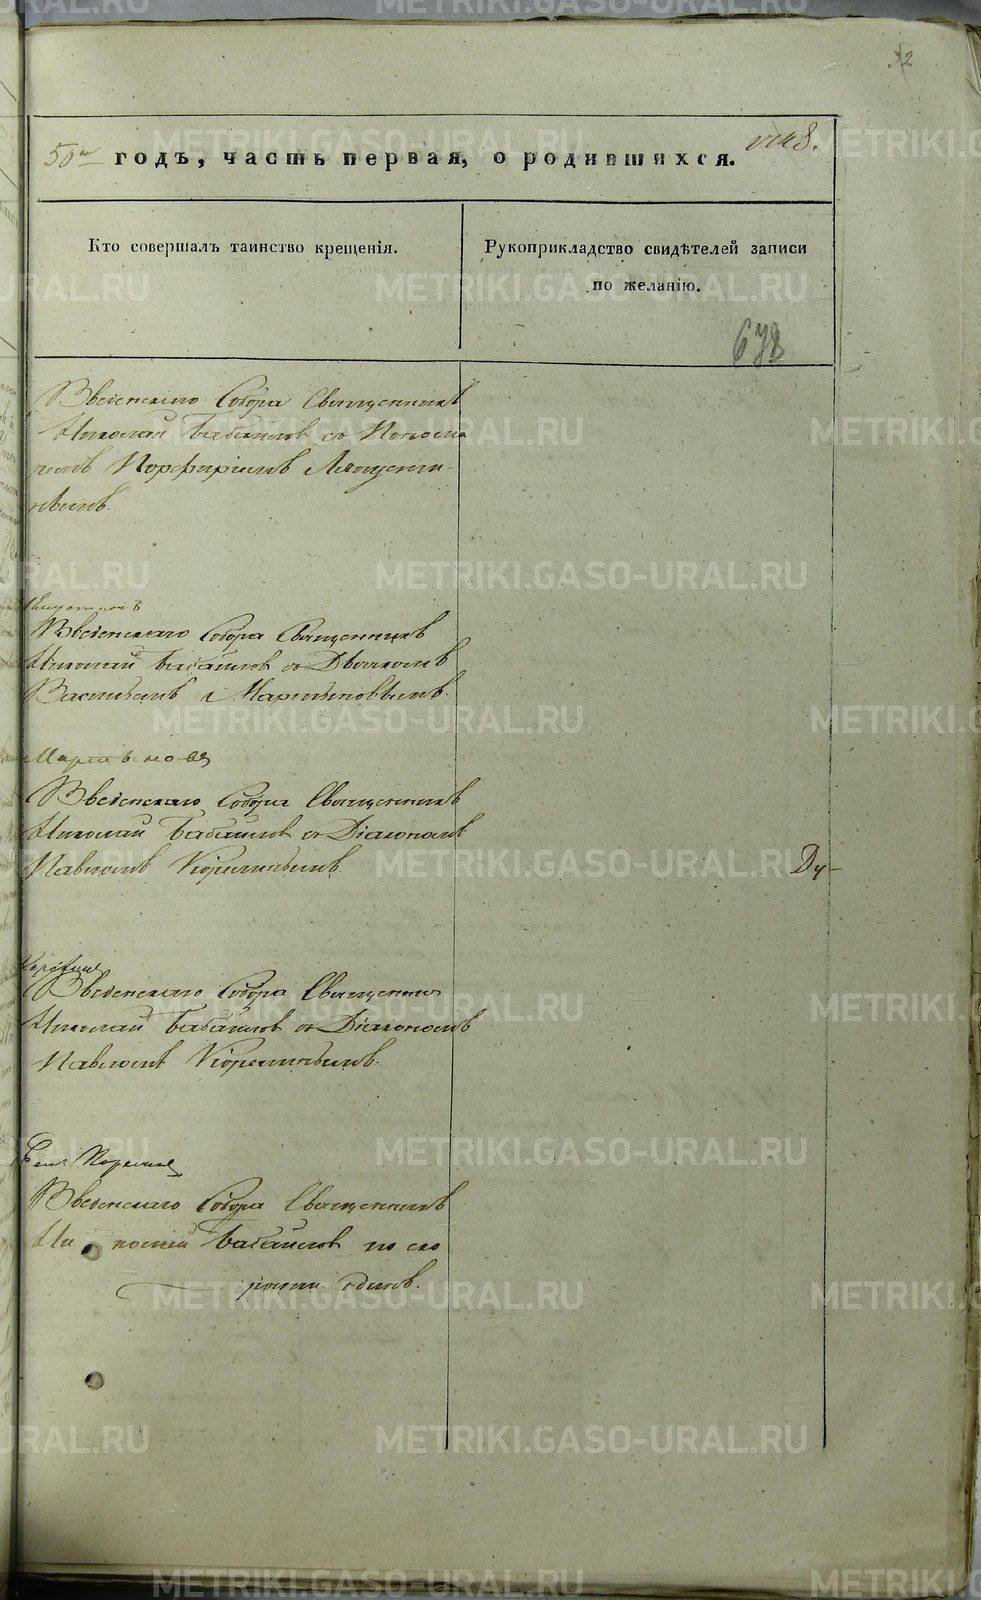 52
50го годъ, часть первая, о родившихся.
Кто совершалъ таинство крещенія.
Рукоприкладство свидѣтелей записи
по желанію.
Введенскаго Собора Священникъ
Николай Бабаиловъ съ Понома
ремъ Порфиріемъ
Введенскаго Собора Священникъ
Николай Бабаиловъ съ Дьякономъ
Василіемъ Мартыновымъ.
Введенскаго Собора Священникъ
Николай Бабаиловъ съ Діакономъ
Павломъ
Введенскаго Собора Священник
Николай Бабаиловъ съ Діакономъ
Павломъ
Введенскаго Собора Священникъ
Ни колай Бабаиловъ по ско
рости одинъ.
Ду-
METRIKI.GASO-URAL.RU